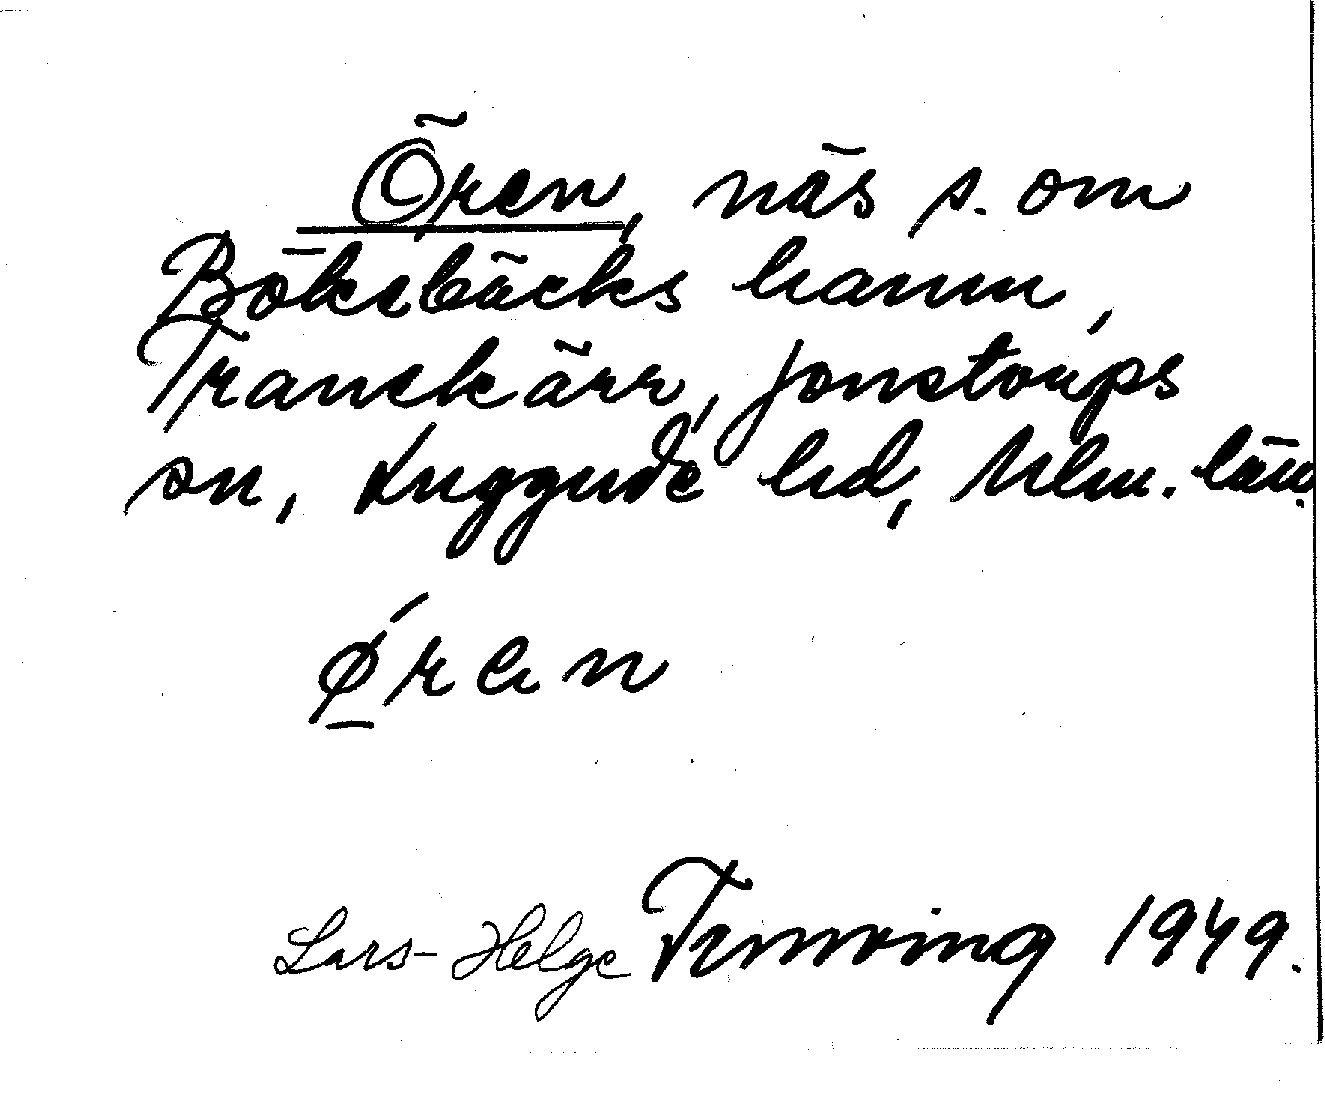 Ören, näs s. om
Böksbäcks hamn,
Transkärr, Jonstorps
sn, Luggude hd, Mlm. län.
ǿren
Lars-Helge 1949.